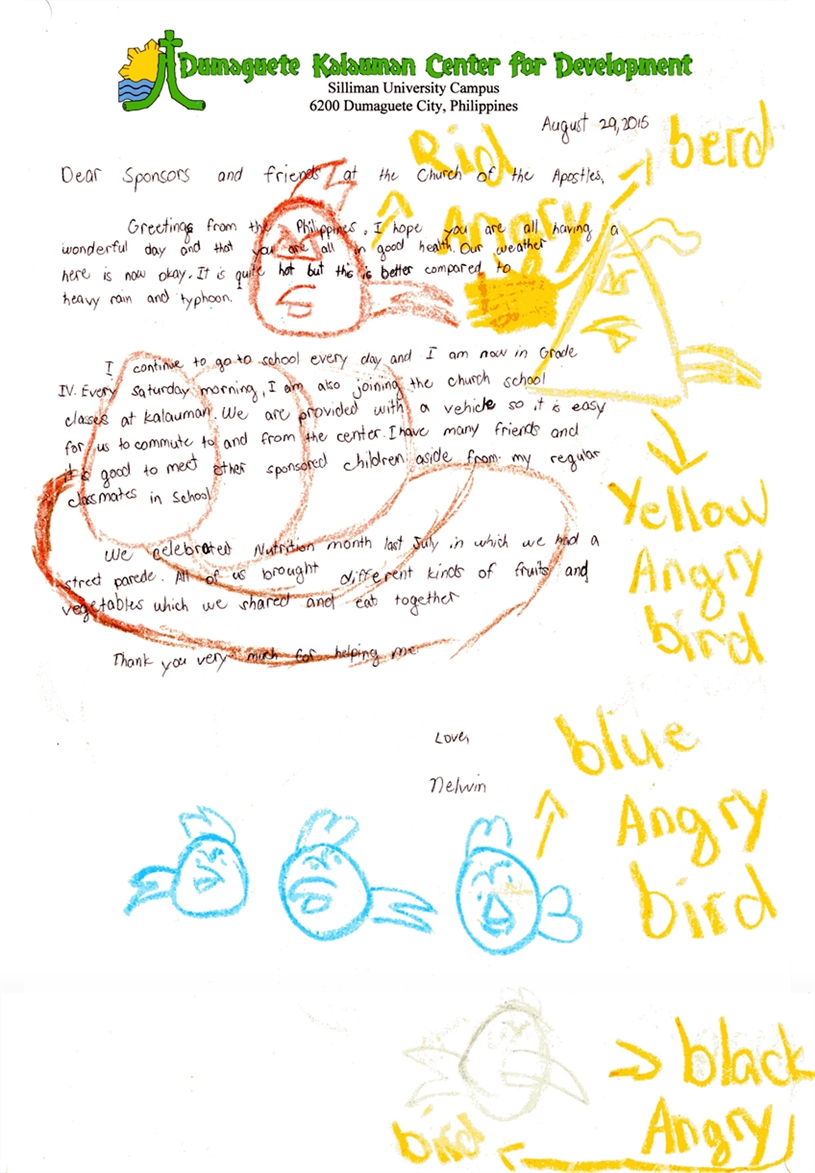 Dumaguete Kalauman Center for Development
Silliman University Campus
6200 Dumaguete City, Philippines
August 29, 2015
Dear Sponsors and friends at the Church of the Apostles,
Greetings from the Philippines. I hope you are all having a
wonderful day and that you are all in good health. Our weather
here is now okay. It is quite hot but this is better compared to
heavy rain and typhoon.
I continue to go to school every day and I am now in Grade
IV. Every Saturday morning, I am also joining the church school
classes at Kalauman. We are provided with a vehicle so it is easy
for us to commute to and from the center. I have many friends and
it is good to meet other sponsored children aside from my regular
classmates in School
We celebrated Nutrition month last July in which we had a
street parede. All of us brought different kinds of fruits and
vegetables which we shared and eat together
Thank you very much for helping me
Love,
Nelwin
Rid
Angry
berd
Yellow
Angry
bird
blue
Angry
bird
black
Angry
bird